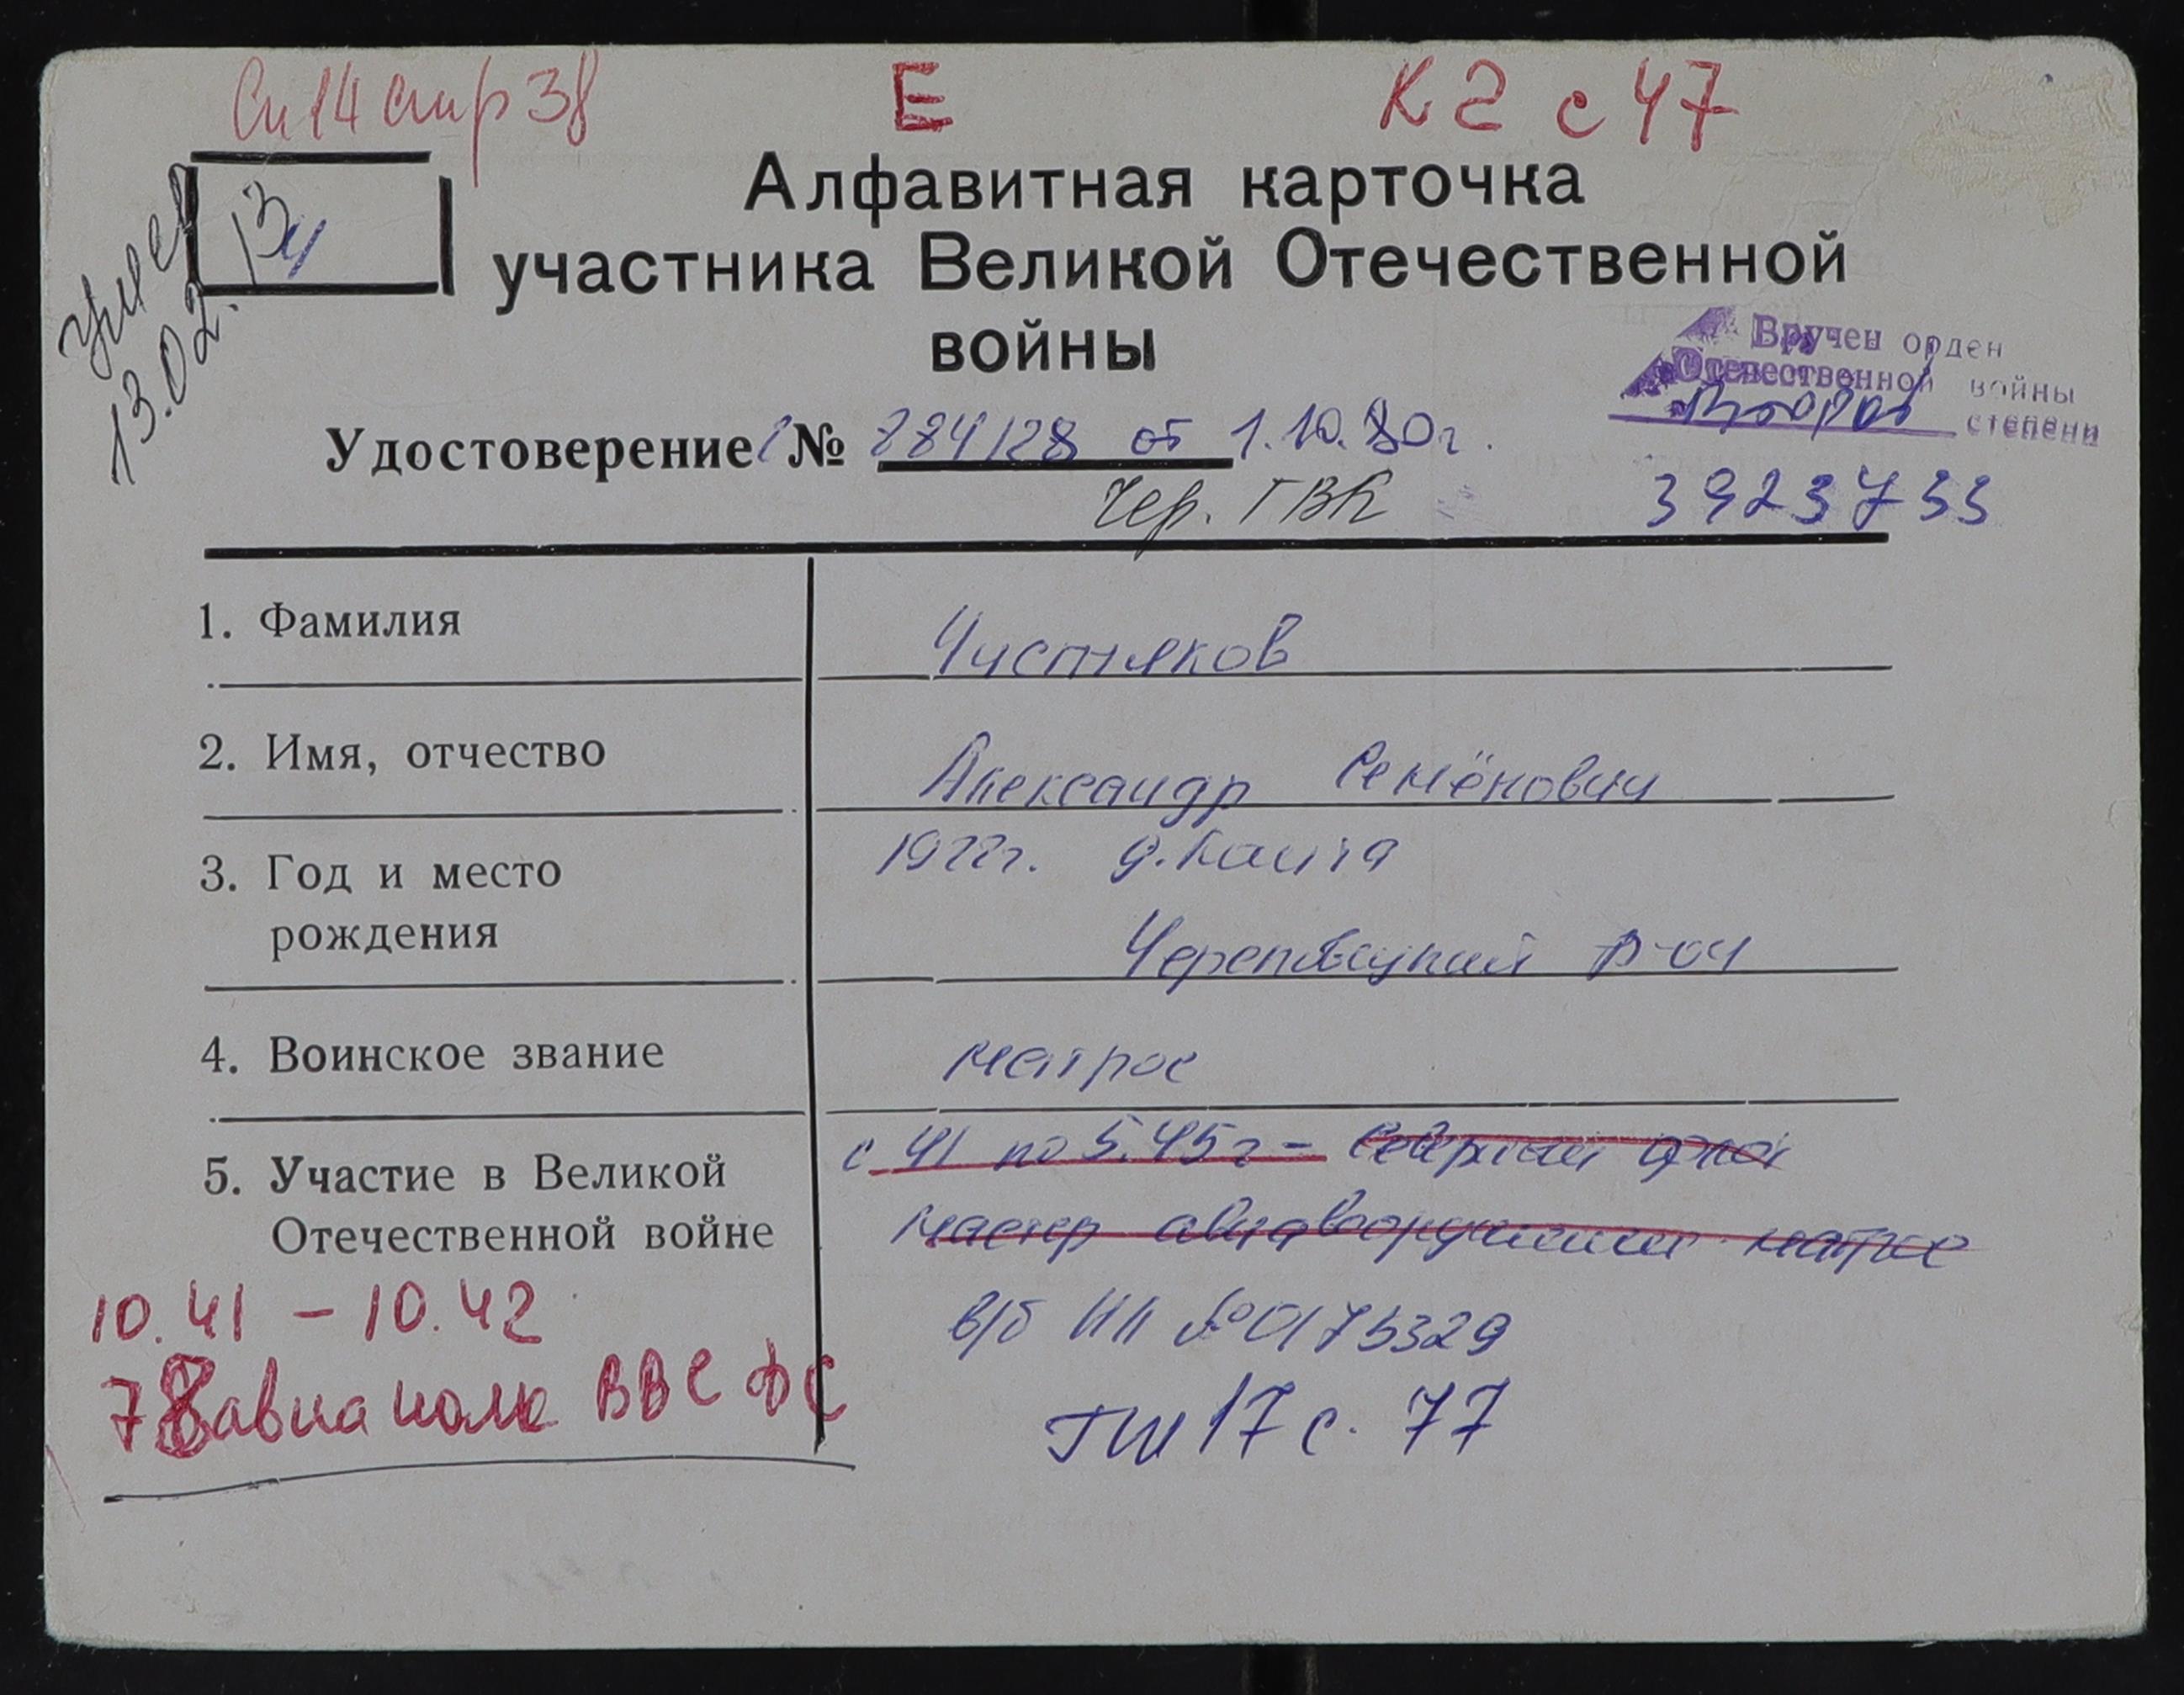 Сп 14 стр 38
Е
К 2 с 47
13
умер 13.02.
Алфавитная карточка
участника Великой Отечественной
войны
Вручен орден
Отечественной войны
второй степени
Удостоверение № 884128 от 1.10.80г.
Чер. ГВК
3923733
1. Фамилия Чистяков
2. Имя, отчество Александр Семёнович
3. Год и место 1922г. д.
рождения Череповецкий р-он
4. Воинское звание матрос
5. Участие в Великой с 41 по 5.45г – Северный флот
Отечественной войне мастер авиавооружения матрос
10.41 – 10.42
в/б НП № 0175329
78 авиаполк ВВС ФС
ГШ 17 с. 77